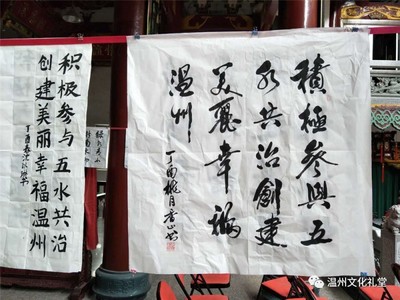 積極參與五
水共治創建
美麗幸福
温州
丁酉桃月
积极参与五水共治
创建美丽幸福温州
丁酉春沈
温州文化礼堂